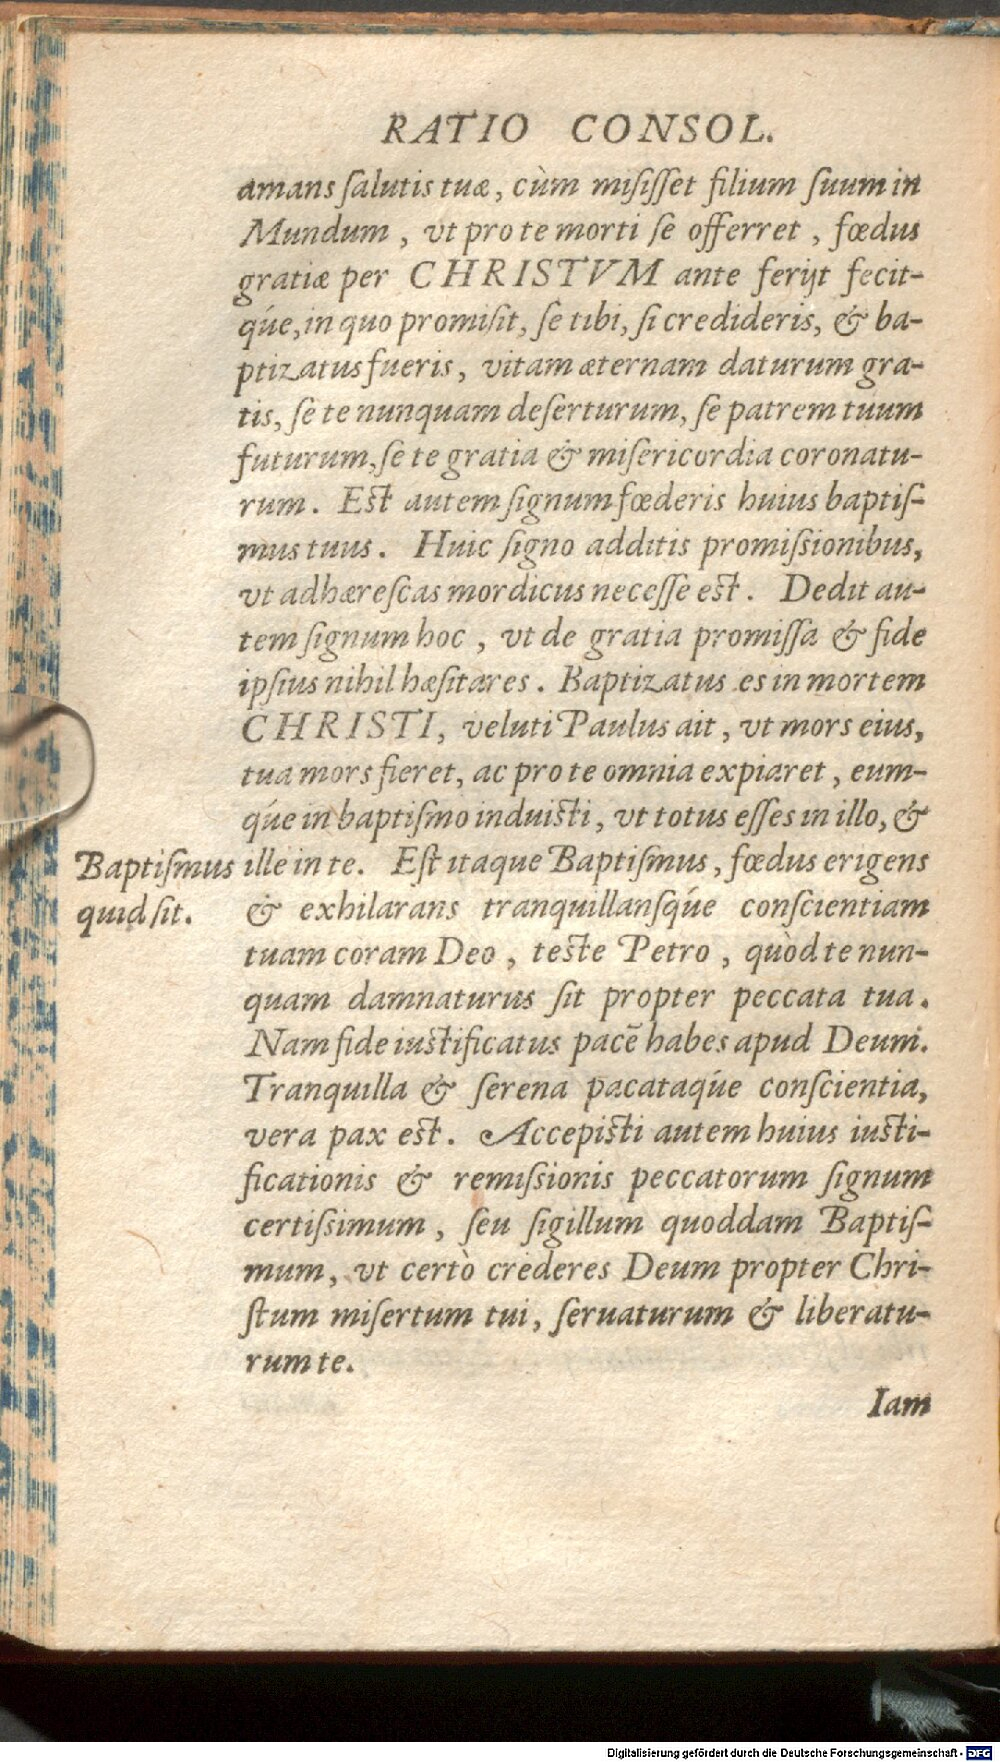 RATIO CONSOL.
amans ſalutis tuæ, cùm miſiſſet filium ſuum in
Mundum, vt pro te morti ſe offerret, fœdus
gratiæ per CHRISTVM ante ferijt fecit-
q́ue, in quo promiſit, ſe tibi, ſi credideris, & ba-
ptizatus fueris, vitam æternam daturum gra-
tis, ſe te nunquam deſerturum, ſe patrem tuum
futurum, ſe te gratia & miſericordia coronatu-
rum. Eſt autem ſignum fœderis huius baptiſ-
mus tuus. Huic ſigno additis promiſsionibus,
vt adhæreſcas mordicus neceſſe eſt. Dedit au-
tem ſignum hoc, vt de gratia promiſſa & fide
ipſius nihil hæſitares. Baptizatus es in mortem
CHRISTI, veluti Paulus ait, vt mors eius,
tua mors fieret, ac pro te omnia expiaret, eum-
q́ue in baptiſmo induiſti, vt totus eſſes in illo, &
Baptiſmus quid ſit.
ille in te. Eſt itaque Baptiſmus, fœdus erigens
& exhilarans tranquillanſq́ue conſcientiam
tuam coram Deo, teſte Petro, quòd te nun-
quam damnaturus ſit propter peccata tua.
Nam fide iuſtificatus pacē habes apud Deum.
Tranquilla & ſerena pacataq́ue conſcientia,
vera pax eſt. Accepiſti autem huius iuſti-
ficationis & remiſsionis peccatorum ſignum
certiſsimum, ſeu ſigillum quoddam Baptiſ-
mum, vt certò crederes Deum propter Chri-
ſtum miſertum tui, ſeruaturum & liberatu-
rum te.
Iam
Digitalisierung gefördert durch die Deutsche Forschungsgemeinschaft - DFG